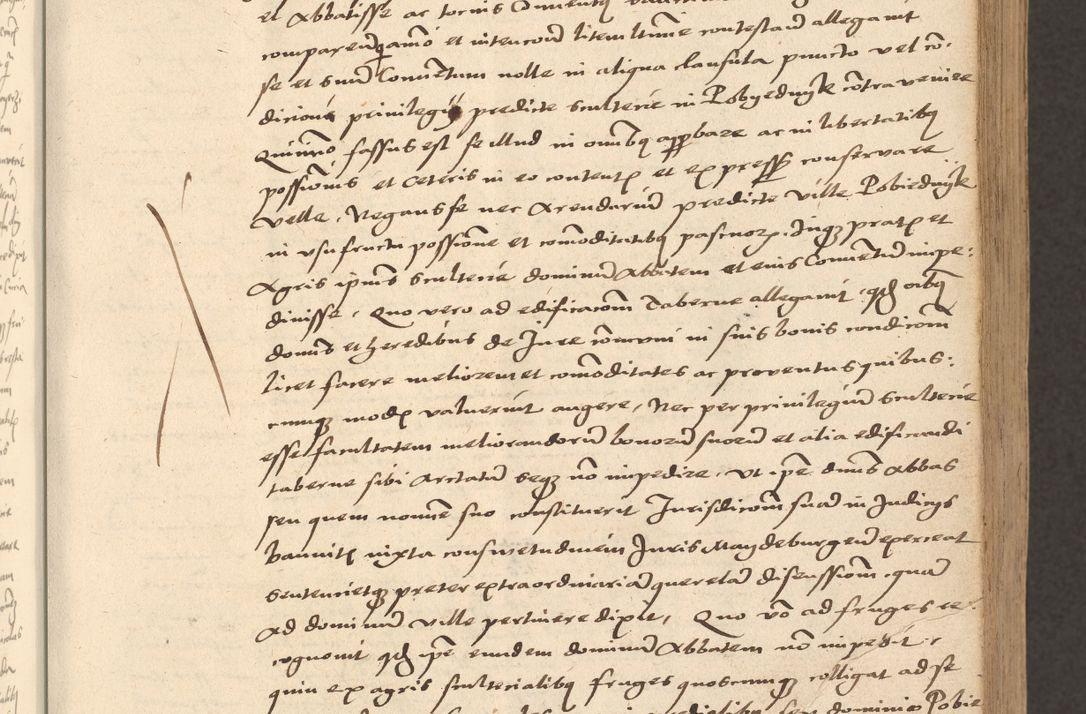 et Abbatisse ac totius Conventus
comparens animo et intencione litem ltime contestand allegavit
se et suum Conventum nolle in aliqua clausula puncto vel co-
dicione privilegÿ predicte scultecie in Pobyednyk contravenire
Quinimo fassus est se illud in omnibus approbare ac in libertatibus
possionis et Ceteris in eo contentis et expressis conservare
velle, Negans se nec Arendarium predicte ville Pobiednÿk
in usufructu possione et comoditatibus pascuorum, Inquis pratis et
Agris ipius scultecie dominum Abbatem et eius Conventum impe-
divisse, Quo vero ad edificacom Taberne allegavit, qd oibus
domis et heredibus de Jure comuni in suis bonis condicom
licet facere meliorem et comoditates ac proventus quibus-
cumque modis valuerint augere, Nec per privilegium scultecie
esse facultatem meliorandorum bonorum suorum et alia edificandi
taberne sibi Arctatam seque no impedire, Ut ipe dnus Abbas
seu quem nomine suo constituerit Jurisdicom suam in Judicÿs
bannitis iuxta consuetudinem Juris Maydeburgen exerceat
sentencietque preter extraordinariam querelam discussiom, quam
Ad dominum ville pertinere dixit, Quo vo ad fruges re-
cognovit qd ipe eundem dominum Abbatem no impedit,
quin ex agris scultecialibus fruges quoscumque colligat ad se
dominio Pobie